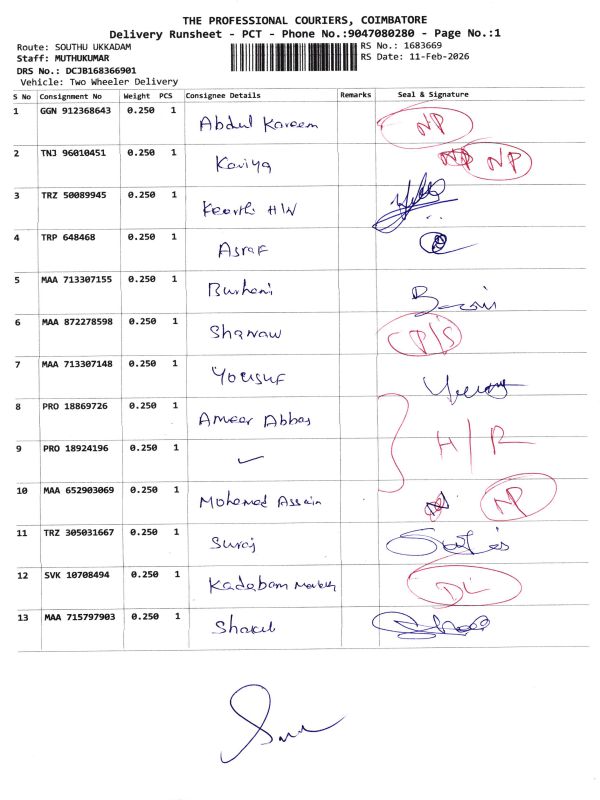 THE PROFESSIONAL COURIERS, COIMBATORE
Delivery Runsheet - PCT - Phone No.:9047080280 - Page No.:1
Route: SOUTHU UKKADAM
RS No.: 1683669
Staff: MUTHUKUMAR
RS Date: 11-Feb-2026
DRS No.: DCJB168366901
Vehicle: Two Wheeler Delivery
S No Consignment No Weight PCS Consignee Details Remarks Seal & Signature
1 GGN 912368643 0.250 1 Abdul Kareem NP
2 TNJ 96010451 0.250 1 Kaviya NP NP
3 TRZ 50089945 0.250 1 Keerthi H/W
4 TRP 648468 0.250 1 Asraf
5 MAA 713307155 0.250 1 Burhani
6 MAA 872278598 0.250 1 P/S
7 MAA 713307148 0.250 1 Yousuf
8 PRO 18869726 0.250 1 Ameer Abbas
9 PRO 18924196 0.250 1 H/R
10 MAA 652903069 0.250 1 Mohamed Assain NP
11 TRZ 305031667 0.250 1 Suraj
12 SVK 10708494 0.250 1 Kadabam DL
13 MAA 715797903 0.250 1 Shakil